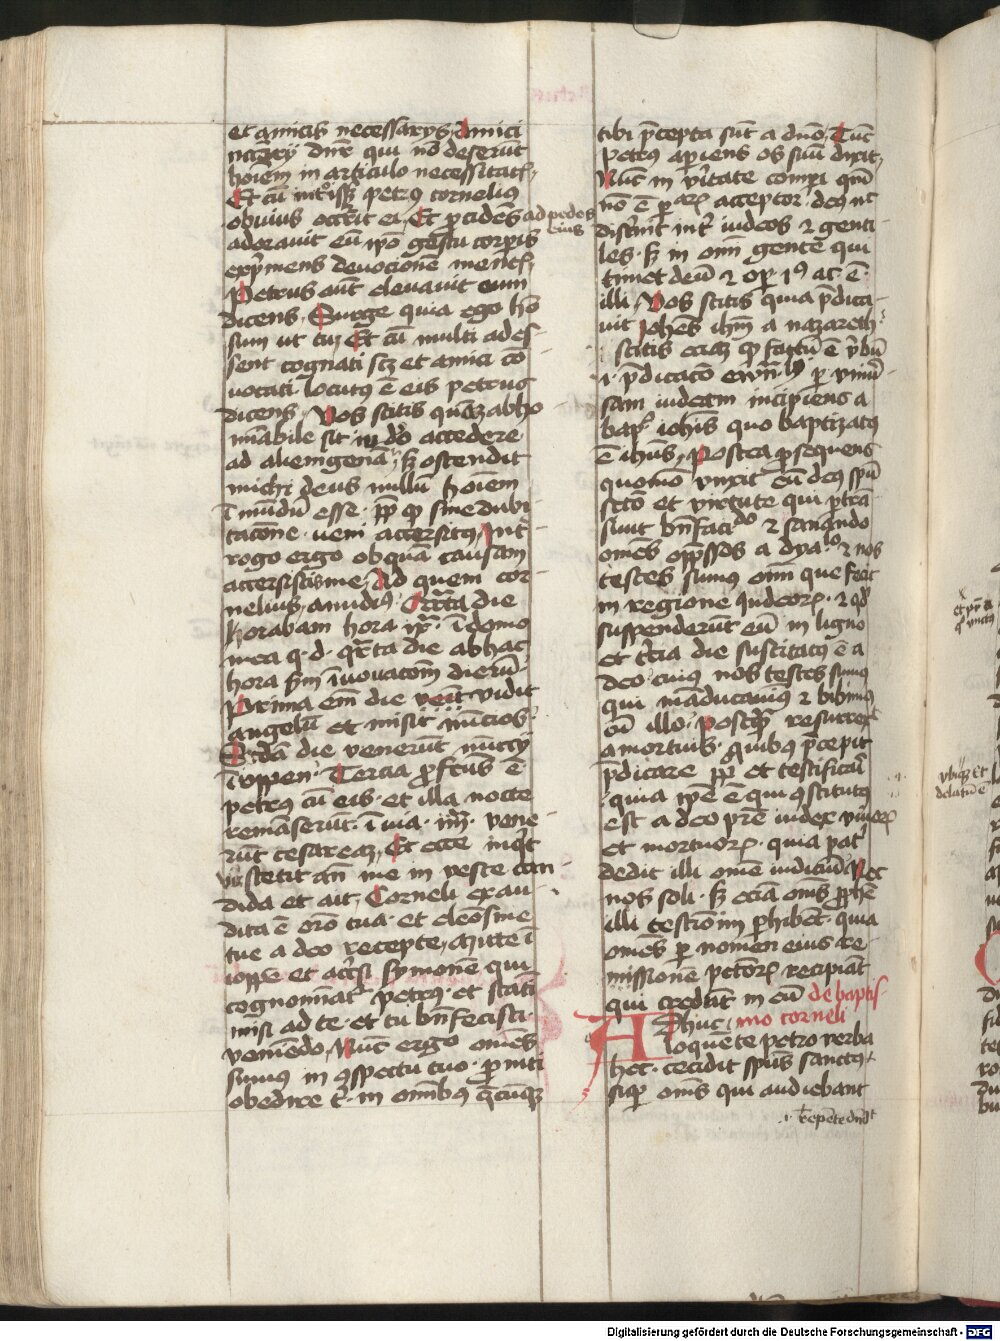 et amicis necessarijs Amici
necessarij dicuntur qui non deserunt
hoiem in articulo necessitatis
Et cum introisset petrus cornelius
obuius occurrit ei Et procidens ad pedes
eius
adorauit eum ipso gestu corporis
exprimens deuocionem mentis
Petrus autem eleuauit eum
dicens Surge quia ego homo
sum ut tu Et cum multi ades
sent cognati scilicet et amici con
uocati locutus est eis petrus
dicens Vos scitis quam abho
minabile sit iudeo accedere
ad alienigenam sed ostendit
michi deus nullum hoiem
immundum esse propter quod sine dubi
tacone ueni accersitus Inter
rogo ergo ob quam causam
accersistis me Ad quem cor
nelius a nudius quarta die
horabam hora ix in domo
mea q d quarta die ab hac
hora
Prima enim die uidit
angelum et misit nuncios
Secunda die venerunt nuncij
ioppen Tercia profectus est
petrus cum eis et illa nocte
remanserunt in uia iiij vene
runt cesaream Et ecce inquit
vir stetit ante me in veste can
dida et ait Corneli exau
dita est oracio tua et eleosine
tue a deo recepte Mitte in
ioppe et accersi symonem qui
cognominatur petrus et statim
misi ad te et tu bene fecisti
veniendo Nunc ergo omnes
sumus in conspectu tuo parati
obedire tibi in omnibus quecumque
tibi precepta sunt a domino Tunc
petrus aperiens os suum dixit
Nunc in veritate comperi quoniam
non est personarum acceptor deus nec
discernit inter iudeos et genti
les sed in omni gente qui
timet deum et operatur iusticiam acceptus est
illi Vos scitis quia predica
uit Johannes ihesum a nazareth
scitis eciam quod factum est verbum
i predicacio per vniuer
sam iudeam incipiens a
baptismo iohannis quo baptizatus
est ihesus Postea prosequens
quomodo vnxit eum deus spiritu
sancto et virtute qui pertran
siuit benefaciendo et sanando
omnes oppressos a dyabolo et nos
testes sumus omnium que fecit
in regione iudeorum et quod
suspenderunt eum in ligno
et tercia die suscitatus est a
deo cuius nos testes sumus
qui manducauimus et bibimus
cum illo postquam resurrexit
a mortuis quibus precepit
predicare populo et testificari
quia ipse est qui constitutus
est a deo patre iudex viuorum
et mortuorum quia pater
dedit illi omne iudicium Nec
nos soli sed eciam omnes prophete
illi testimonium perhibent quia
omnes per nomen eius re
missionem peccatorum recipiant
qui credunt in eum de baptis
Adhuc mo corneli
loquente petro verba
hec cecidit spiritus sanctus
super omnes qui audiebant
i repente